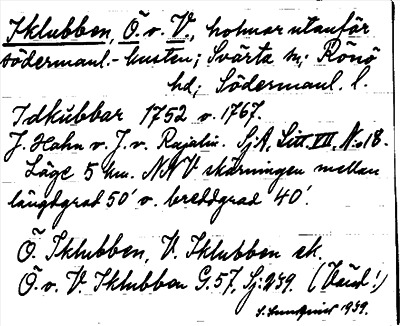 Iklubben, Ö. v. V., holmar utanför
södermanl.-kusten; Svärta sn; Rönö
hd; Södermanl. l.
Idkubbar 1752 v. 1767.
J. Hahn v. J. v. Rajalin. SjA, Litt. VII, No 18.
Läge 5 km. NNV skärningen mellan
längdgrad 50' v. breddgrad 40'.
Ö. Iklubben, V. Iklubben ek.
Ö. v. V. Iklubben G. 57, Sj: 239. (Vaud!)
S. Lundqvist 1939.